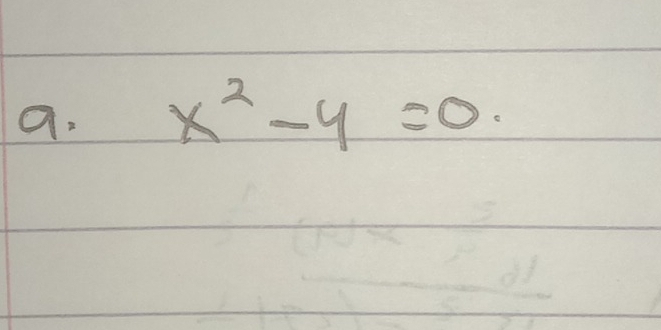 a. x² - 4 = 0.